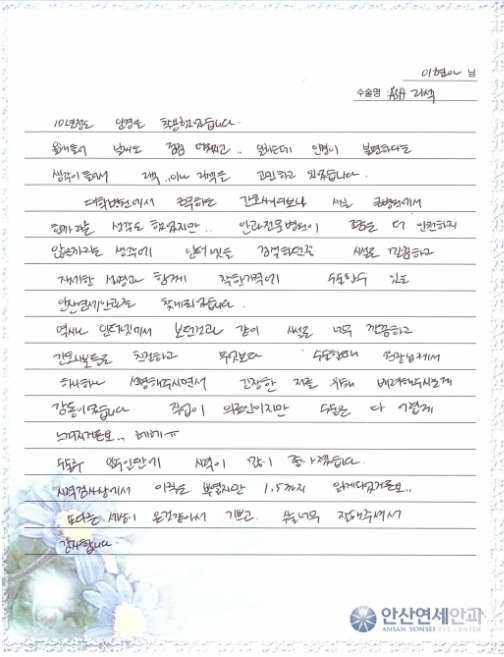 이현아 님
수술명 : 라섹
10년정도 안경을 착용했었습니다.
올해들어 날씨도 점점 더워지고.. 일하는데 안경이 불편하다는
생각이 들어서 라섹.. 이나 라식을 고민하고 있었습니다.
대학병원에서 근무하는 간호사여서 사실 큰병원에서
할까라는 생각도 했었지만.. 안과전문병원이 더 안전하지
않을까라는 생각에 인터넷을 검색하던중 시설도 깔끔하고
자세한 설명과 함께 착한가격에 수술할수 있는
안산연세안과를 찾게되었습니다.
역시나 인터넷에서 보던것과 같이 시설도 너무 깔끔하고
간호사분들도 친절하고 무엇보다 수술할때 원장님께서
하나하나 설명해주시면서 긴장한 저를 위해 배려해주시는게
감동이었습니다. 직업이 의료인이지만 수술은 다 어렵게
느껴지거든요... 헤헤 ㅠ
수술후 일주일만에 시력이 많이 좋아졌습니다.
시력검사상에서 아직은 부옇지만 1.5까지 읽게되었거든요..
또다른 세상이 온것같아서 기쁘고. 수술너무 잘해주셔서
감사합니다.
안산연세안과
ANSAN YONSEI EYE CENTER